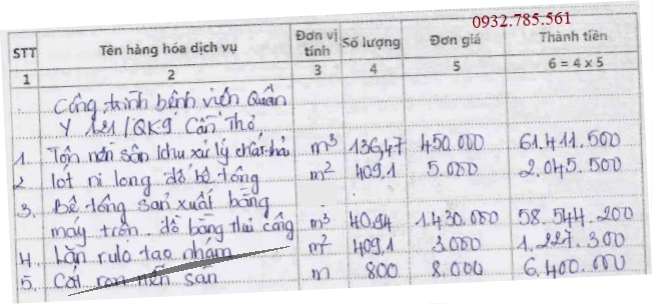 0932.785.561
STT Tên hàng hóa dịch vụ Đơn vị tính Số lượng Đơn giá Thành tiền
1 2 3 4 5 6 = 4 x 5
Công trình bệnh viện Quân
Y 121/QK9 Cần Thơ
1. Tôn nền sân khu xử lý chất thải m³ 136,47 450.000 61.411.500
2 lót ni long đổ bê tông m² 409,1 5.000 2.045.500
3. Bê tông sản xuất bằng
máy trộn. đổ bằng thủ công m³ 40.94 1.430.000 58.544.200
4. Lăn rulo tạo nhám m² 409,1 3.000 1.227.300
5. Cắt ron nền sân m 800 8.000 6.400.000